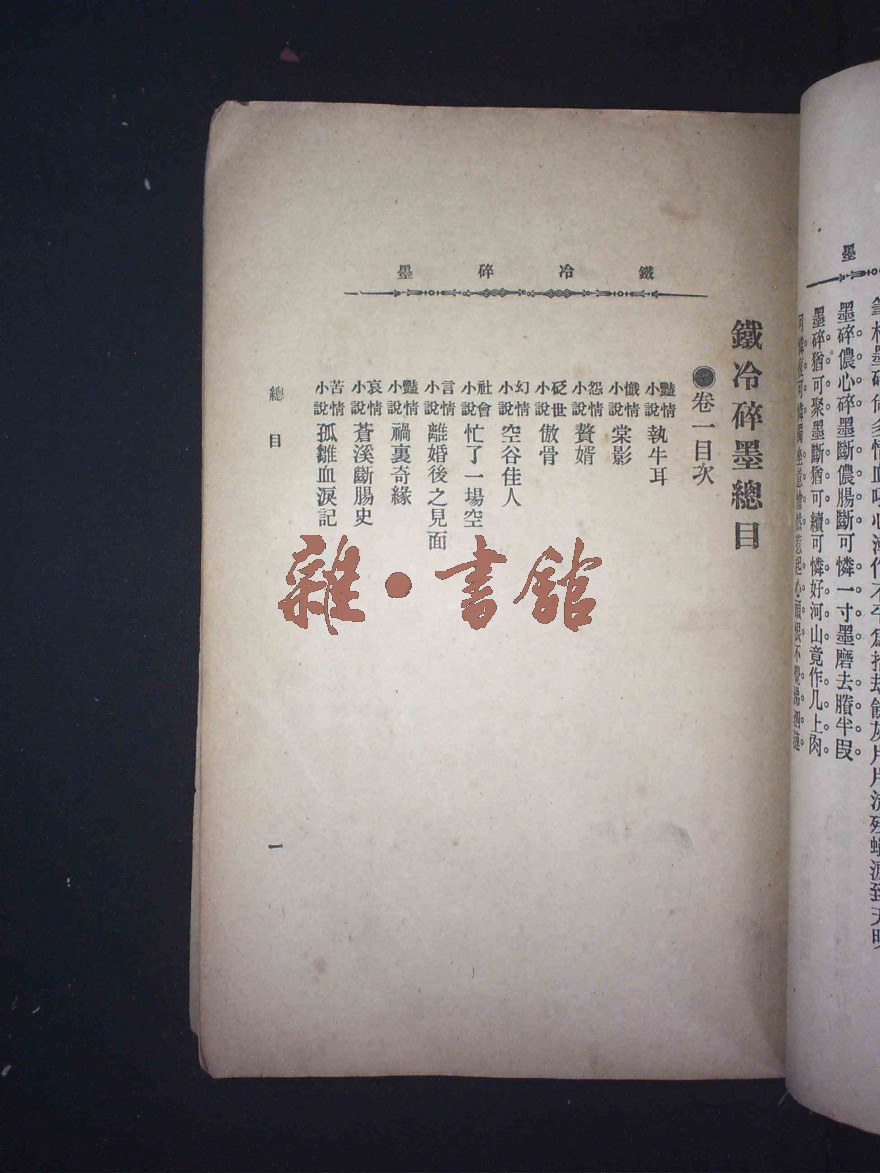 鐵冷碎墨
鐵冷碎墨總目
卷一目次
豔情小說 執牛耳
懺情小說 棠影
怨情小說 贅婿
砭世小說 傲骨
幻情小說 空谷佳人
社會小說 忙了一場空
言情小說 離婚後之見面
豔情小說 禍裏奇緣
哀情小說 蒼溪斷腸史
苦情小說 孤雛血淚記
總目
一
雜·書館
墨
墨碎儂心碎墨斷儂腸斷可憐一寸墨磨去賸半段
墨碎猶可聚墨斷猶可續可憐好河山竟作几上肉